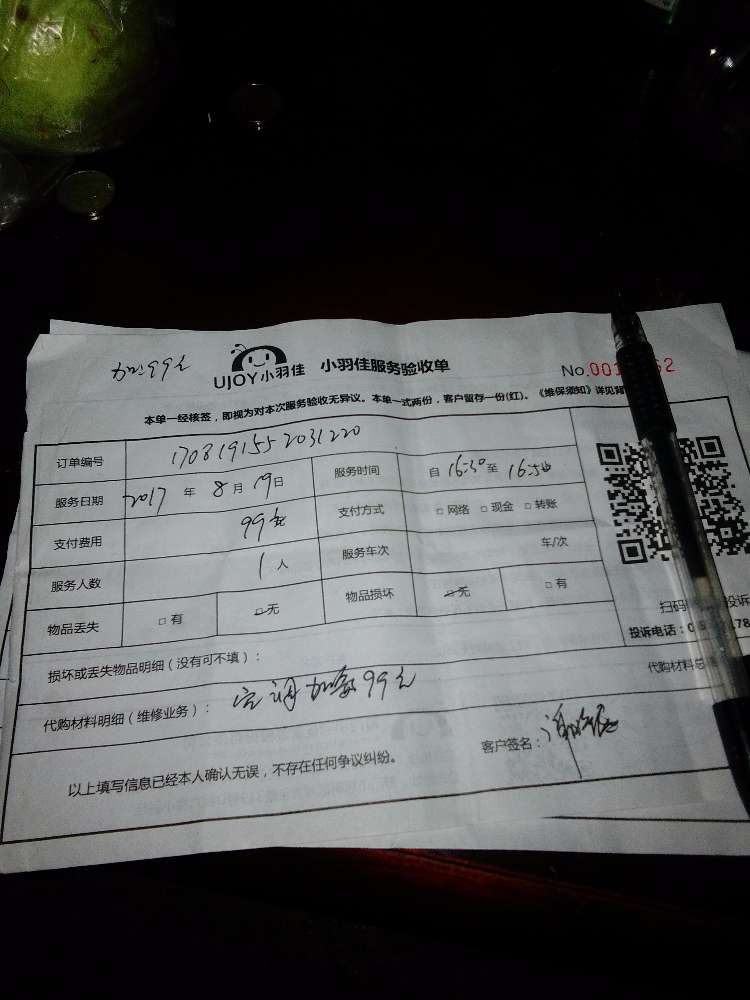 加99元
UJOY小羽佳 小羽佳服务验收单
No.001 62
本单一经核签，即视为对本次服务验收无异议。本单一式两份，客户留存一份(红)。《维保须知》详见背
订单编号 1708191552031220
服务日期 2017 年 8 月 19 日 服务时间 自 16:30 至 16:50
支付费用 99元 支付方式 □ 网络 □ 现金 □ 转账
服务人数 1 人 服务车次 车/次
物品丢失 □ 有 □ 无 物品损坏 □ 无 □ 有
扫码 投诉
投诉电话：0 78
损坏或丢失物品明细（没有可不填）：
代购材料明细（维修业务）： 空调加氟99元 代购材料总
以上填写信息已经本人确认无误，不存在任何争议纠纷。 客户签名：